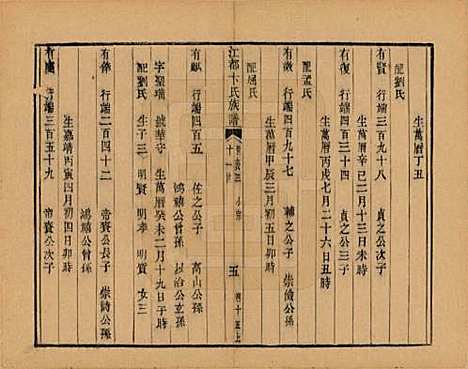 配劉氏
生萬曆丁丑
有賢 行端三百九十八 貞之公次子
生萬曆辛巳二月十三日未時
有復 行端四百三十四 貞之公三子
生萬曆丙戌七月二十六日丑時
配孟氏
有徵 行端四百九十七 輔之公子 崇儉公孫
生萬曆甲辰三月初五日卯時
配屈氏
江都卞氏族譜
十一世
五
四十五上
有麒 行端四百五 佐之公子 高山公孫
鴻磧公曾孫 以治公玄孫
字聖瑞 號華守 生萬曆癸未二月十九日子時
配劉氏 生子三 明賢 明孝 明實 女三
有俸 行端二百四十二 帝賚公長子 崇儉公孫
鴻磧公曾孫
生嘉靖丙寅四月初四日卯時
行端三百五十九 帝賚公次子